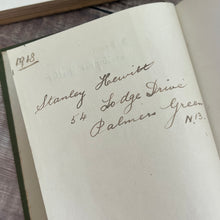 1913
Stanley Hewitt
54 Lodge Drive
Palmers Green
N.13.